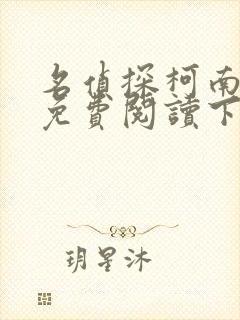 名偵探柯南
免費閱讀下
玥星沐